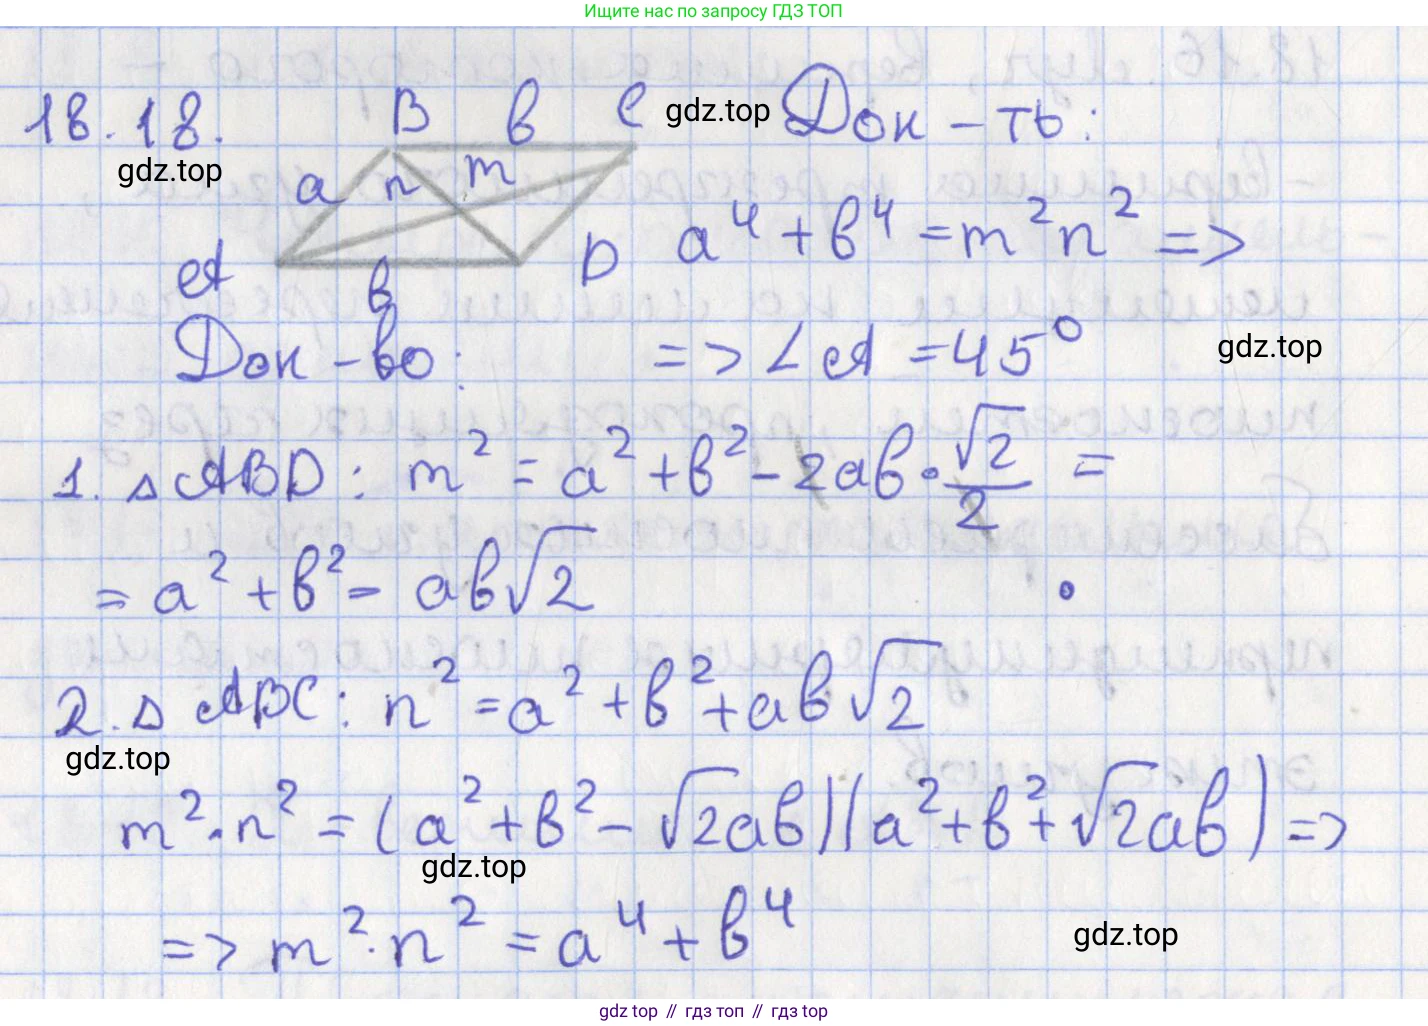 Ищите нас по запросу ГДЗ ТОП
18.18.
B в C
gdz.top
Док-ть:
gdz.top
a n m
a⁴+в⁴=m²n² =>
A в D
Док-во:
=> ∠A =45°
gdz.top
1. △ABD: m² = a²+в²-2aв·√2/2 =
= a²+в²- aв√2
2. △ABC: n²=a²+в²+aв√2
gdz.top
m²·n² = (a²+в²-√2aв)(a²+в²+√2aв) =>
gdz.top
=> m²·n² = a⁴+в⁴
gdz.top
gdz.top // гдз топ // гдз top